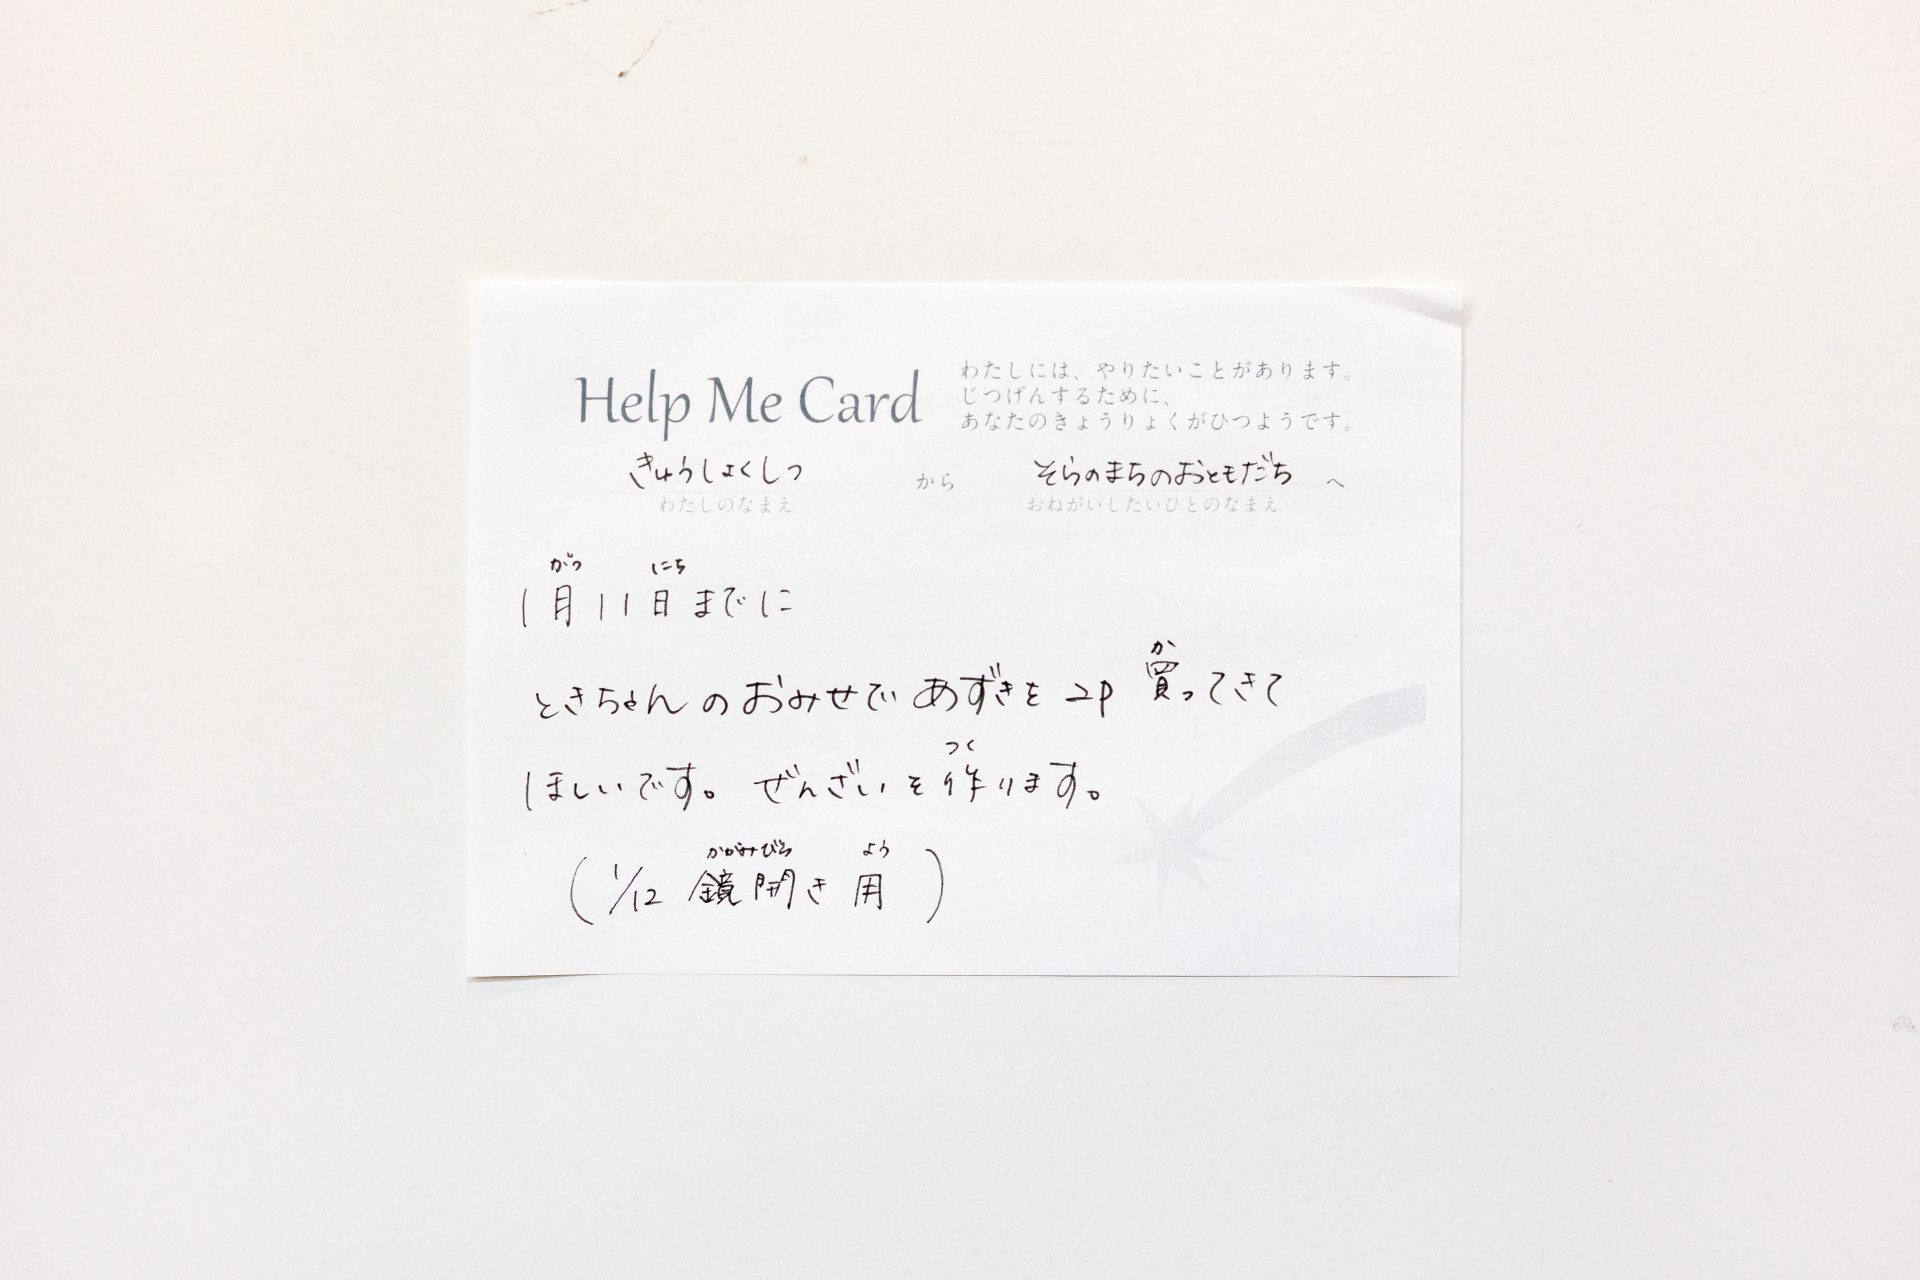 Help Me Card
わたしには、やりたいことがあります。
じつげんするために、
あなたのきょうりょくがひつようです。
きゅうしょくしつ から そらのまちのおともだち へ
わたしのなまえ おねがいしたいひとのなまえ
がつ にち
1月11日までに
か
ときちゃんのおみせであずきを2p買ってきて
つく
ほしいです。ぜんざいを作ります。
かがみびら よう
(1/12 鏡開き用)